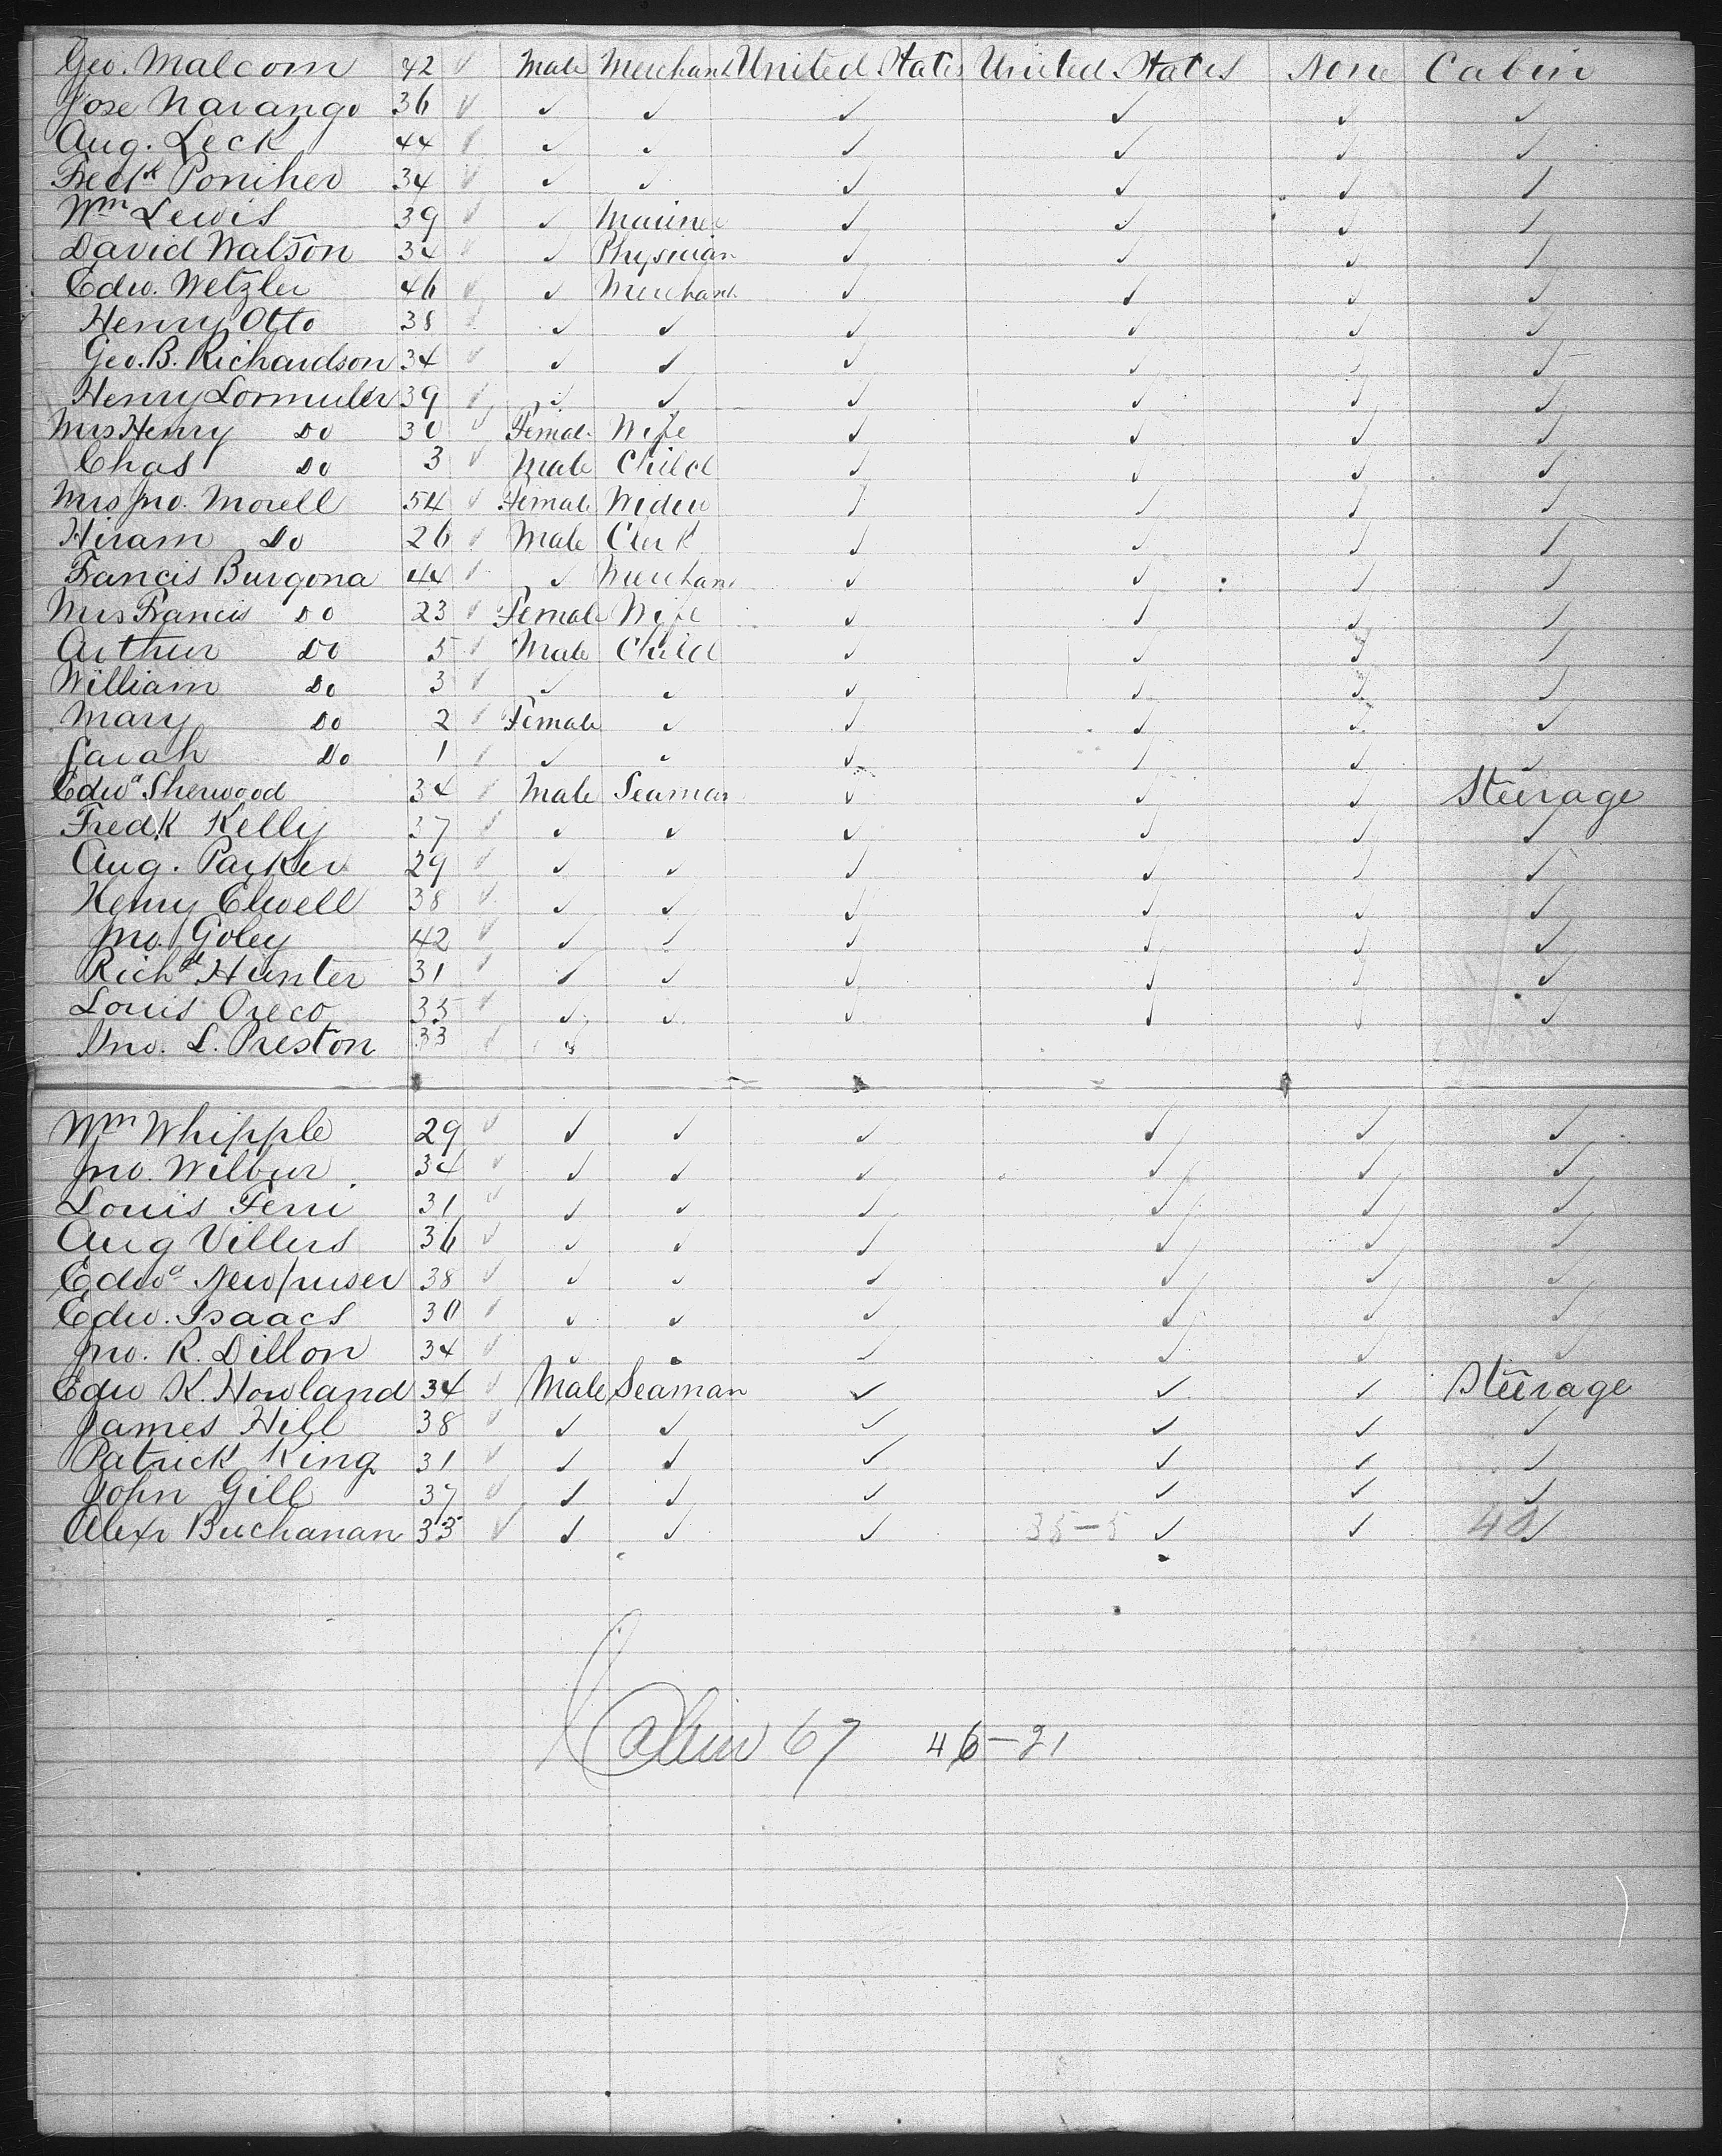 Geo. Malcom 42 ✓ Male Merchant United States United States None Cabin
Jose Narango 36 ✓ ✓ ✓ ✓ ✓ ✓ ✓
Aug. Leck 44 ✓ ✓ ✓ ✓ ✓ ✓ ✓
Fredk Poniher 34 ✓ ✓ ✓ ✓ ✓ ✓ ✓
Wm Lewis 39 ✓ ✓ Mariner ✓ ✓ ✓ ✓
David Watson 34 ✓ ✓ Physician ✓ ✓ ✓ ✓
Edw. Wetzler 46 ✓ ✓ Merchant ✓ ✓ ✓ ✓
Henry Otto 38 ✓ ✓ ✓ ✓ ✓ ✓ ✓
Geo. B. Richardson 34 ✓ ✓ ✓ ✓ ✓ ✓ ✓
Henry Lormuler 39 ✓ ✓ ✓ ✓ ✓ ✓ ✓
Mrs Henry Do 30 ✓ Female Wife ✓ ✓ ✓ ✓
Chas Do 3 ✓ Male Child ✓ ✓ ✓ ✓
Mrs Jno. Morell 54 ✓ Female Widow ✓ ✓ ✓ ✓
Hiram Do 26 ✓ Male Clerk ✓ ✓ ✓ ✓
Francis Burgona 44 ✓ ✓ Merchant ✓ ✓ ✓ ✓
Mrs Francis Do 23 ✓ Female Wife ✓ ✓ ✓ ✓
Arthur Do 5 ✓ Male Child ✓ ✓ ✓ ✓
William Do 3 ✓ ✓ ✓ ✓ ✓ ✓ ✓
Mary Do 2 ✓ Female ✓ ✓ ✓ ✓ ✓
Sarah Do 1 ✓ ✓ ✓ ✓ ✓ ✓ ✓
Edwd Sherwood 34 ✓ Male Seaman ✓ ✓ ✓ Steerage
Fredk Kelly 37 ✓ ✓ ✓ ✓ ✓ ✓ ✓
Aug. Parker 29 ✓ ✓ ✓ ✓ ✓ ✓ ✓
Henry Elwell 38 ✓ ✓ ✓ ✓ ✓ ✓ ✓
Jno. Goley 42 ✓ ✓ ✓ ✓ ✓ ✓ ✓
Richd Hunter 31 ✓ ✓ ✓ ✓ ✓ ✓ ✓
Louis Oreco 35 ✓ ✓ ✓ ✓ ✓ ✓ ✓
Jno. L. Preston 33 ✓ ✓
Wm Whipple 29 ✓ ✓ ✓ ✓ ✓ ✓ ✓
Jno. Wilbur 34 ✓ ✓ ✓ ✓ ✓ ✓ ✓
Louis Ferri 31 ✓ ✓ ✓ ✓ ✓ ✓ ✓
Aug Villers 36 ✓ ✓ ✓ ✓ ✓ ✓ ✓
Edwd 38 ✓ ✓ ✓ ✓ ✓ ✓ ✓
Edw. Isaacs 30 ✓ ✓ ✓ ✓ ✓ ✓ ✓
Jno. R. Dillon 34 ✓ ✓ ✓ ✓ ✓ ✓ ✓
Edw K. Howland 34 ✓ Male Seaman ✓ ✓ ✓ Steerage
James Hill 38 ✓ ✓ ✓ ✓ ✓ ✓ ✓
Patrick King 31 ✓ ✓ ✓ ✓ ✓ ✓ ✓
John Gill 37 ✓ ✓ ✓ ✓ ✓ ✓ ✓
Alexr Buchanan 33 ✓ ✓ ✓ ✓ 35-5 ✓ ✓ 40 ✓
Cabin 67 46-21